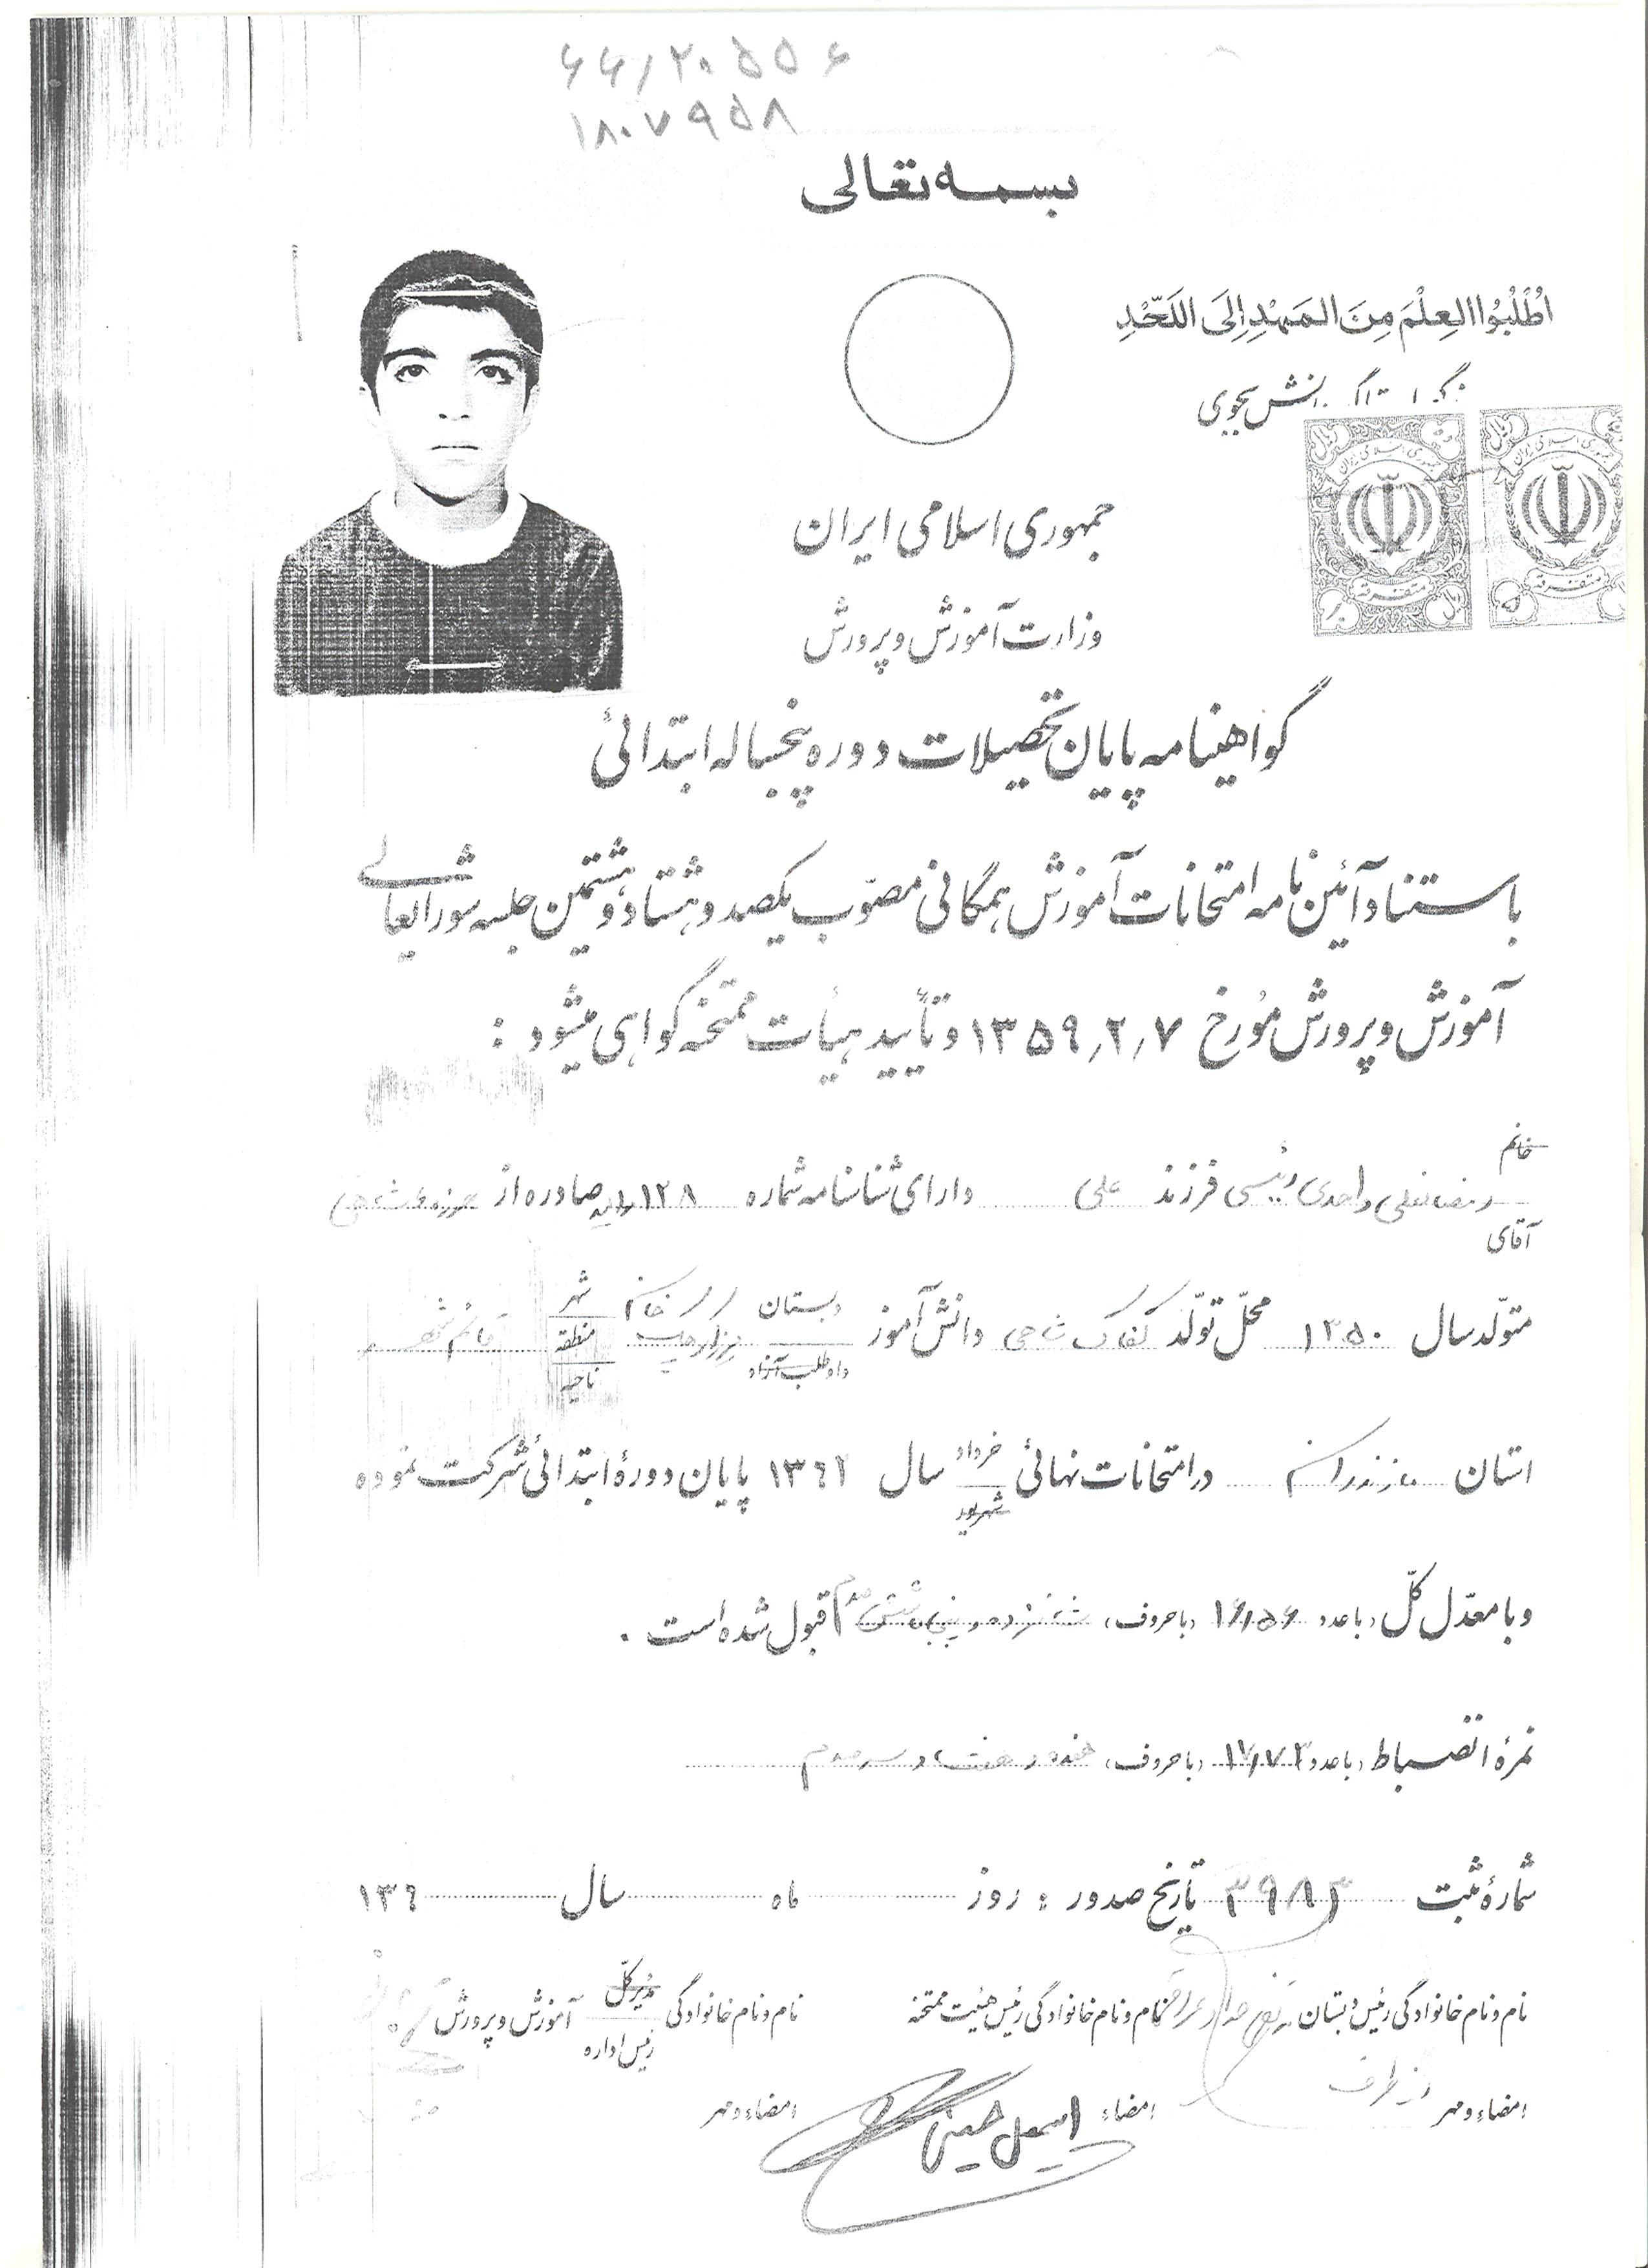 ۶۶/۲۰۵۵۶
۱۸۰۷۹۵۸
بسمه تعالی
اُطْلُبُوا العِلْمَ مِنَ المَهْدِ اِلَی اللَّحْدِ
دانش بجوی
جمهوری اسلامی ایران
وزارت آموزش و پرورش
گواهینامه پایان تحصیلات دوره پنجساله ابتدائی
باستناد آئین نامه امتحانات آموزش همگانی مصوّب یکصد و هشتاد و هشتمین جلسه شورایعالی
آموزش و پرورش مُورخ ۱۳۵۹/۲/۷ و تأیید هیأت ممتحنه گواهی میشود :
خانم
آقای رمضانعلی واحدی رئیسی فرزند علی دارای شناسنامه شماره ۱۱۲۸ صادره از
متولّد سال ۱۳۵۰ محلّ تولّد دانش آموز دبستان شهر قائم شهر
داوطلب آزاد منطقه
ناحیه
استان مازندران در امتحانات نهائی خرداد سال ۱۳۶۲ پایان دورهٔ ابتدائی شرکت نموده
شهریور
و با معدّل کلّ (با عدد ۱۶/۵۶ (با حروف) شانزده و پنجاه و شش صدم قبول شده است .
نمرهٔ انضباط (با عدد) ۱۷/۷۳ (با حروف) هفده و هفتاد و سه صدم
شمارهٔ ثبت تاریخ صدور : روز ماه سال ۱۳۶
نام و نام خانوادگی رئیس دبستان نام و نام خانوادگی رئیس هیئت ممتحنه نام و نام خانوادگی مدیر کلّ آموزش و پرورش
رئیس اداره
از طرف
امضاء و مهر امضاء اسمعیل حسینی امضاء و مهر